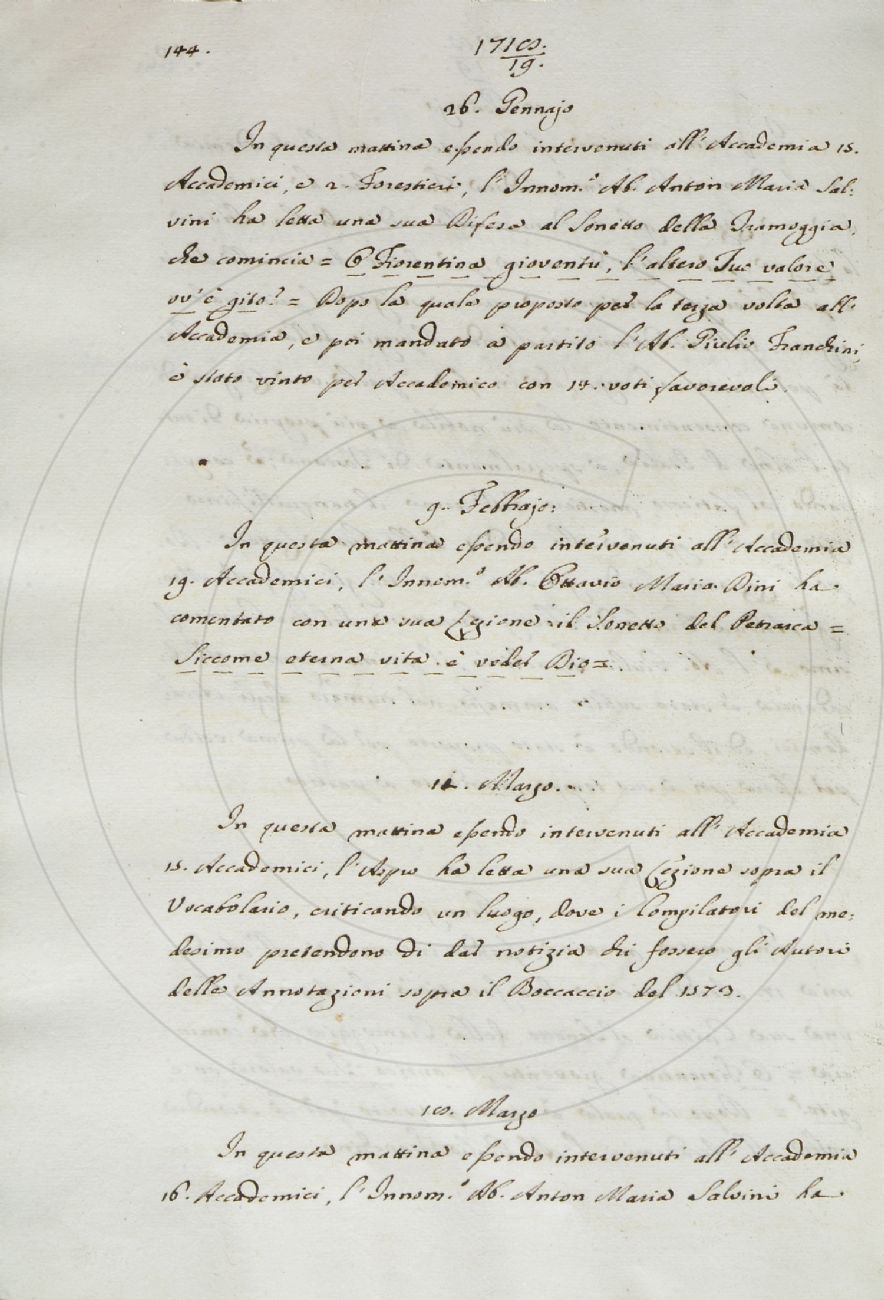 144.
1718.
19.
26. Gennajo
In questa mattina essendo intervenuti all'Accademia 15.
Accademici, e 2. Forestieri, l'Innom.º Ab. Anton Maria Sal:
vini ha letta una sua Difesa al Sonetto della Tramoggia,
che comincia = O Fiorentina gioventù, l'altero Tuo valore
ov'è gito? = Dopo la quale proposto per la terza volta all'
Accademia, e poi mandato a partito l'Ab. Giulio Franchini
è stato vinto per Accademico con 14. voti favorevoli.
9. Febbrajo.
In questa mattina essendo intervenuti all'Accademia
19. Accademici, l'Innom.º Ab. Ottavio Maria Dini ha
comentato con una sua Lezione il Sonetto del Petrarca =
Siccome eterna vita è veder Dio =.
11. Marzo.
In questa mattina essendo intervenuti all'Accademia
15. Accademici, l'Aspro ha letta una sua Lezione sopra il
Vocabolario, criticando un luogo, dove i Compilatori del me:
desimo pretendono di dar notizia chi fossero gli Autori
delle Annotazioni sopra il Boccaccio del 1573.
18. Marzo
In questa mattina essendo intervenuti all'Accademia
16. Accademici, l'Innom.º Ab. Anton Maria Salvini ha